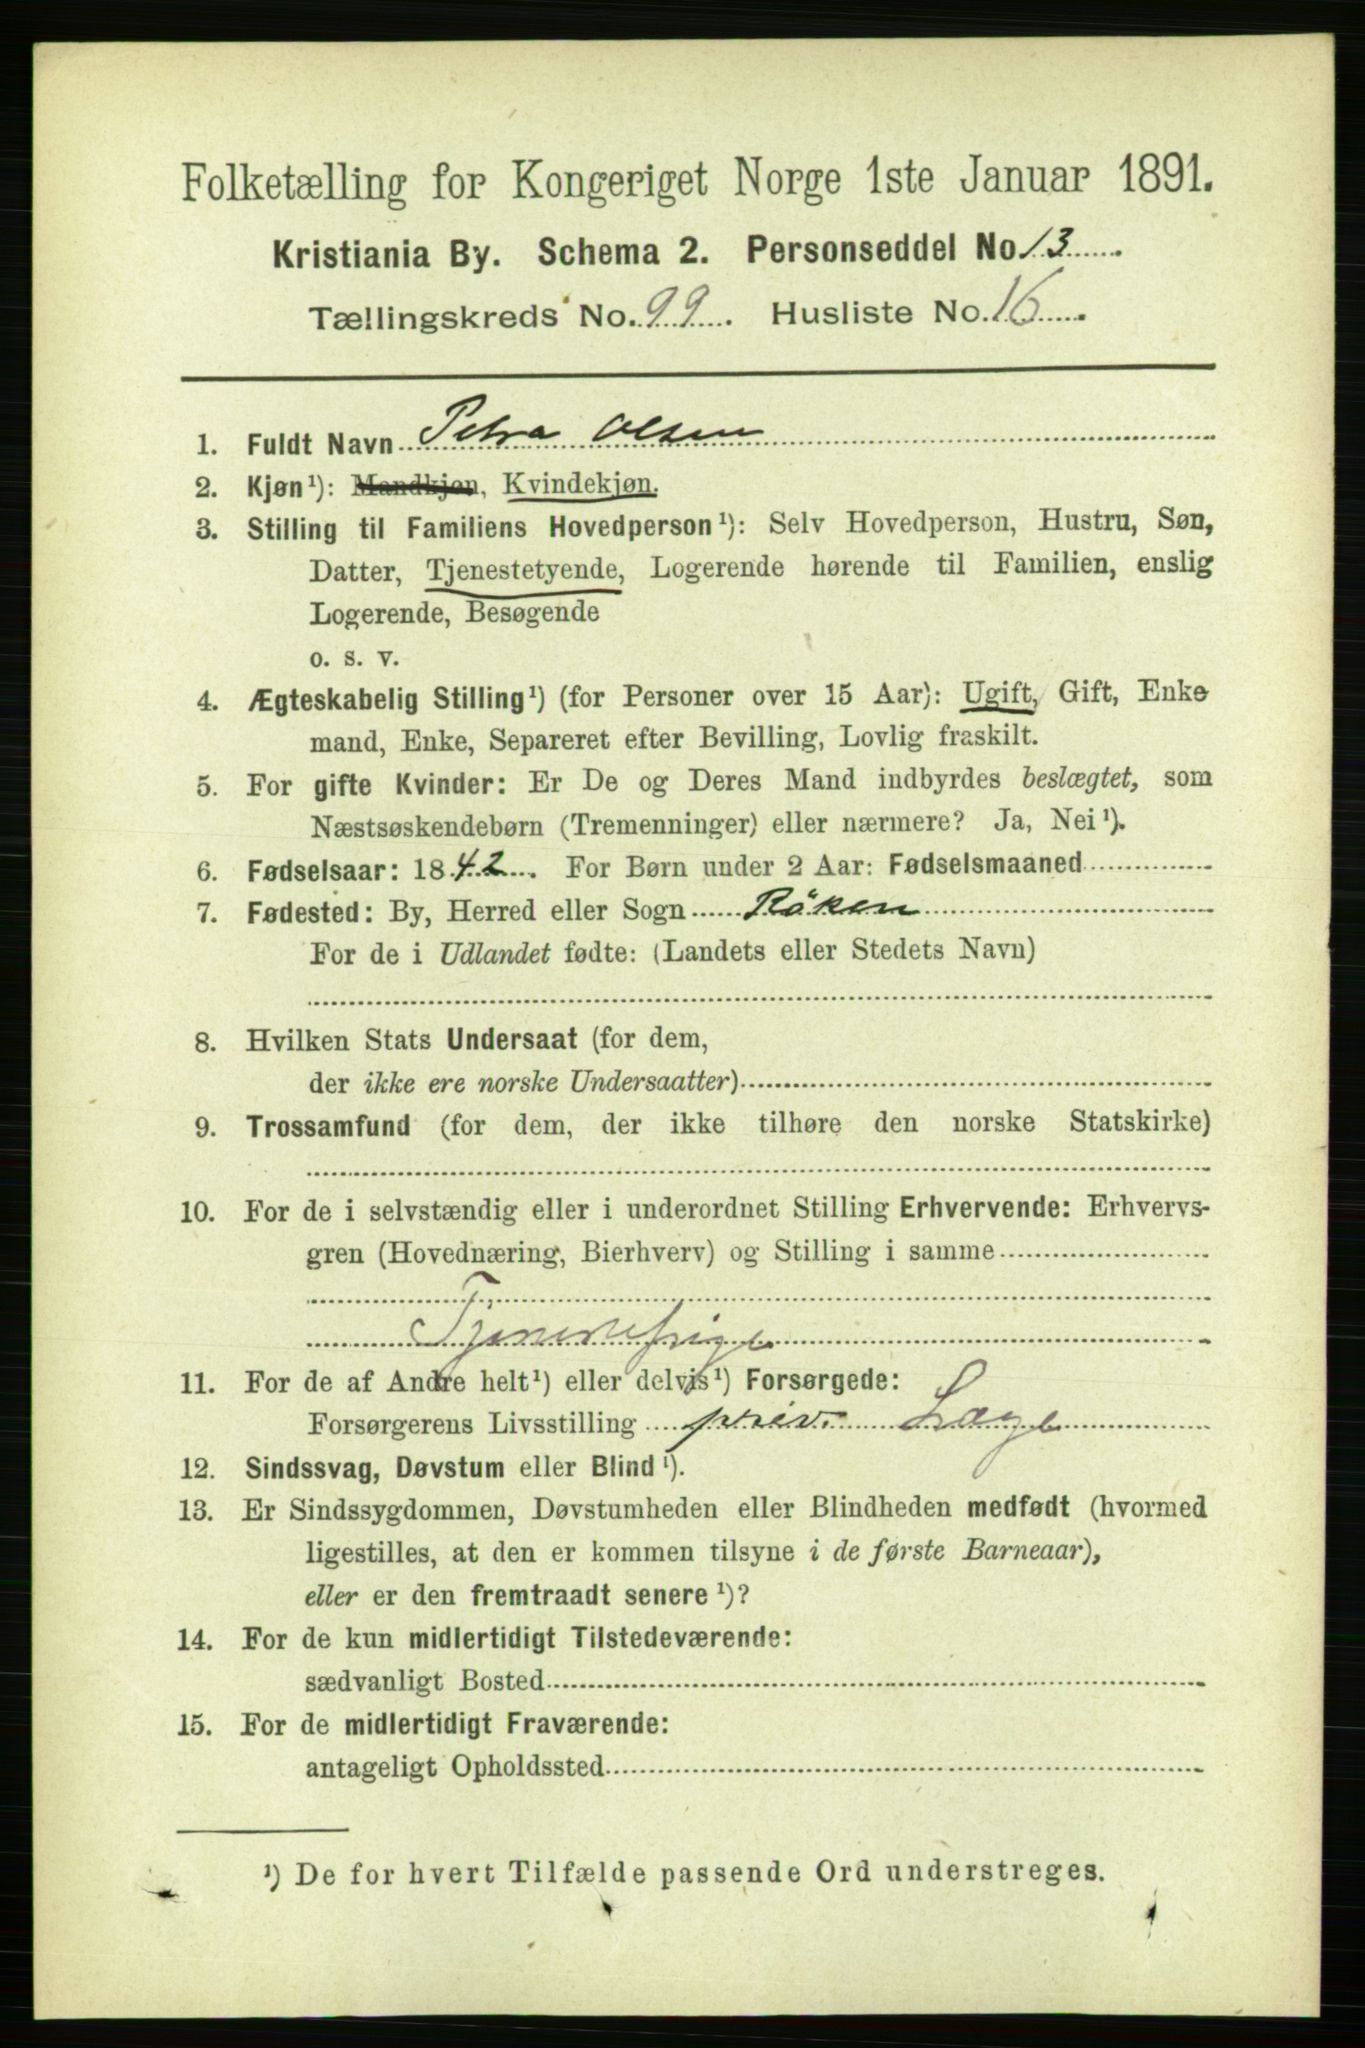 Folketælling for Kongeriget Norge 1ste Januar 1891.
Kristiania By. Schema 2. Personseddel No 13
Tællingskreds No. 99. Husliste No. 16.
1. Fuldt Navn Petra Olsen
2. Kjøn¹): Mandkjøn, Kvindekjøn.
3. Stilling til Familiens Hovedperson¹): Selv Hovedperson, Hustru, Søn,
Datter, Tjenestetyende, Logerende hørende til Familien, enslig
Logerende, Besøgende
o. s. v.
4. Ægteskabelig Stilling¹) (for Personer over 15 Aar): Ugift, Gift, Enke
mand, Enke, Separeret efter Bevilling, Lovlig fraskilt.
5. For gifte Kvinder: Er De og Deres Mand indbyrdes beslægtet, som
Næstsøskendebørn (Tremenninger) eller nærmere? Ja, Nei¹).
6. Fødselsaar: 1842. For Børn under 2 Aar: Fødselsmaaned
7. Fødested: By, Herred eller Sogn Röken
For de i Udlandet fødte: (Landets eller Stedets Navn)
8. Hvilken Stats Undersaat (for dem,
der ikke ere norske Undersaatter)
9. Trossamfund (for dem, der ikke tilhøre den norske Statskirke)
10. For de i selvstændig eller i underordnet Stilling Erhvervende: Erhvervs-
gren (Hovednæring, Bierhverv) og Stilling i samme
Tjenestepige
11. For de af Andre helt¹) eller delvis¹) Forsørgede:
Forsørgerens Livsstilling priv. Læge
12. Sindssvag, Døvstum eller Blind¹).
13. Er Sindssygdommen, Døvstumheden eller Blindheden medfødt (hvormed
ligestilles, at den er kommen tilsyne i de første Barneaar),
eller er den fremtraadt senere¹)?
14. For de kun midlertidigt Tilstedeværende:
sædvanligt Bosted
15. For de midlertidigt Fraværende:
antageligt Opholdssted
¹) De for hvert Tilfælde passende Ord understreges.